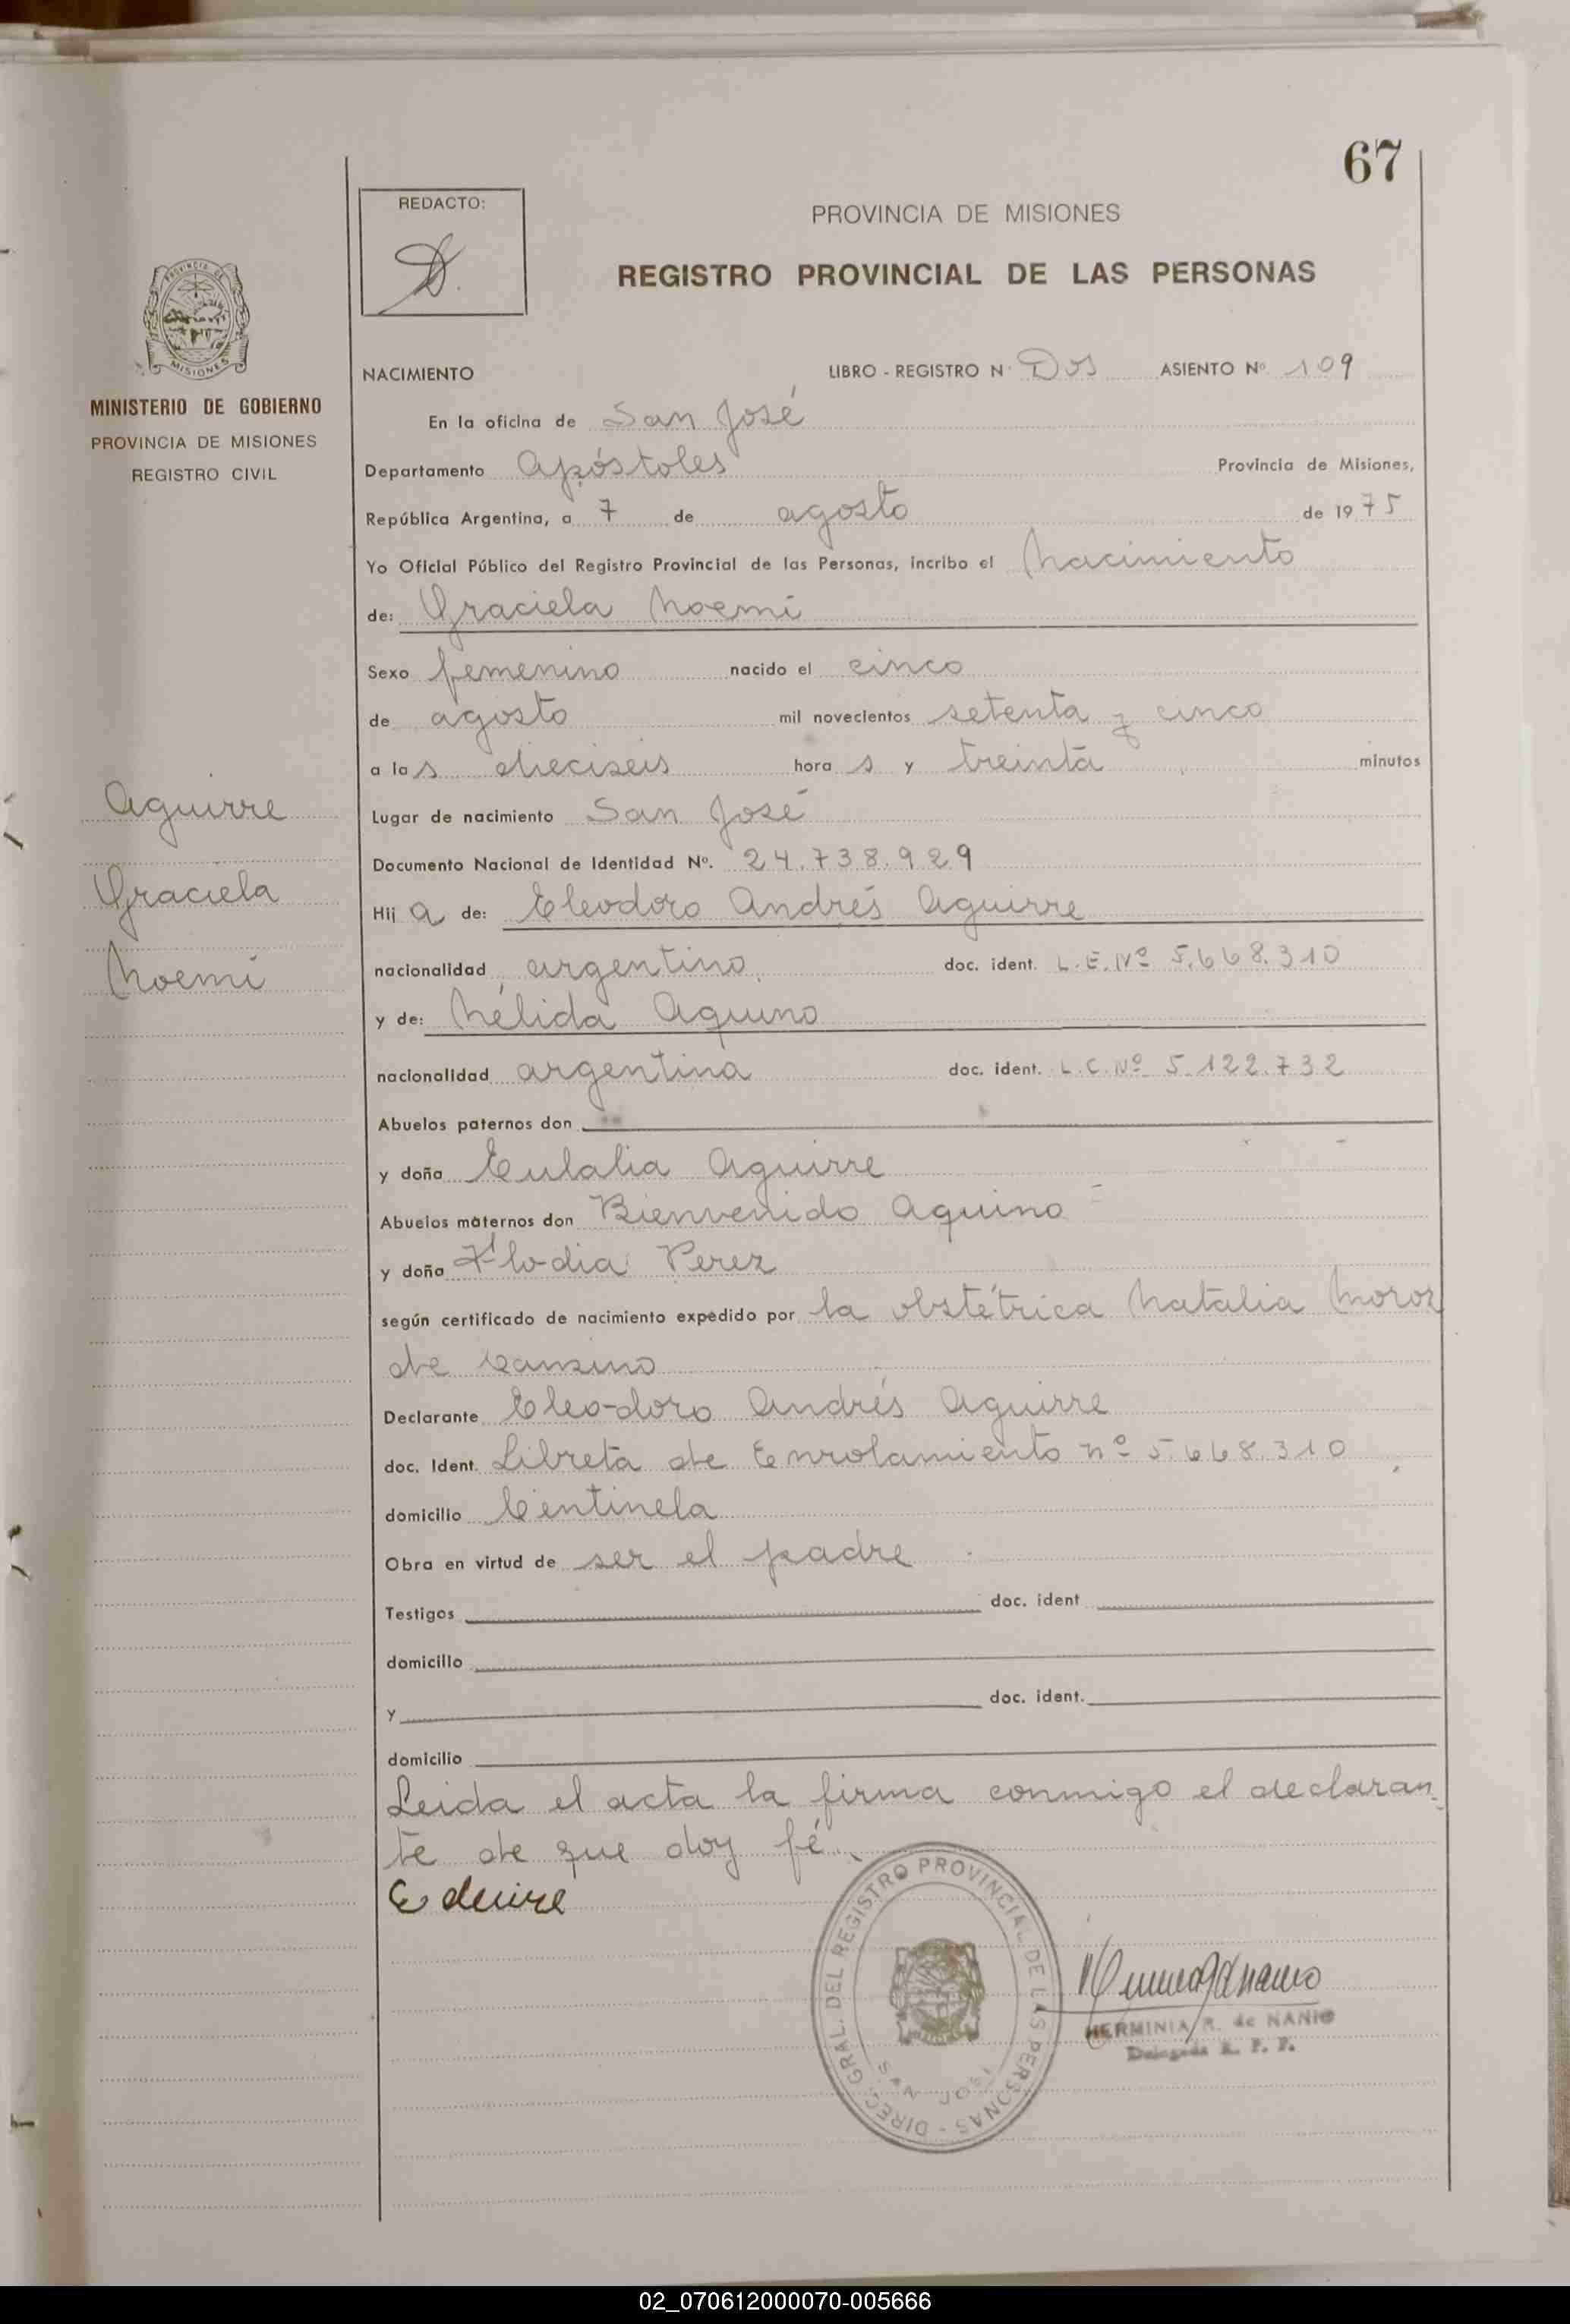 67
REDACTO:
PROVINCIA DE MISIONES
REGISTRO PROVINCIAL DE LAS PERSONAS
PROVINCIA DE
MISIONES
MINISTERIO DE GOBIERNO
PROVINCIA DE MISIONES
REGISTRO CIVIL
Aguirre
Graciela
Noemí
NACIMIENTO LIBRO - REGISTRO N· Dos ASIENTO Nº 109
En la oficina de San José
Departamento Apóstoles Provincia de Misiones,
República Argentina, a 7 de agosto de 1975
Yo Oficial Público del Registro Provincial de las Personas, incribo el Nacimiento
de: Graciela Noemí
Sexo femenino nacido el cinco
de agosto mil novecientos setenta y cinco
a las dieciseis horas y treinta minutos
Lugar de nacimiento San José
Documento Nacional de Identidad Nº. 24.738.929
Hija de: Eleodoro Andrés Aguirre
nacionalidad argentino doc. ident. L.E.Nº 5.668.310
y de: Nélida Aquino
nacionalidad argentina doc. ident. L.C.Nº 5.122.732
Abuelos paternos don
y doña Eulalia Aguirre
Abuelos maternos don Bienvenido Aquino
y doña Flodia Perez
según certificado de nacimiento expedido por la obstétrica Natalia Moroz
de
Declarante Eleodoro Andrés Aguirre
doc. Ident. Libreta de Enrolamiento nº 5.668.310
domicilio Centinela
Obra en virtud de ser el padre
Testigos doc. ident
domicilio
y doc. ident.
domicilio
Leida el acta la firma conmigo el declaran
te de que doy fé.
DIREC. GRAL. DEL REGISTRO PROVINCIAL DE LAS PERSONAS -
SAN JOSE
HERMINIA R. de NANIO
Delegada R. P. P.
02_070612000070-005666